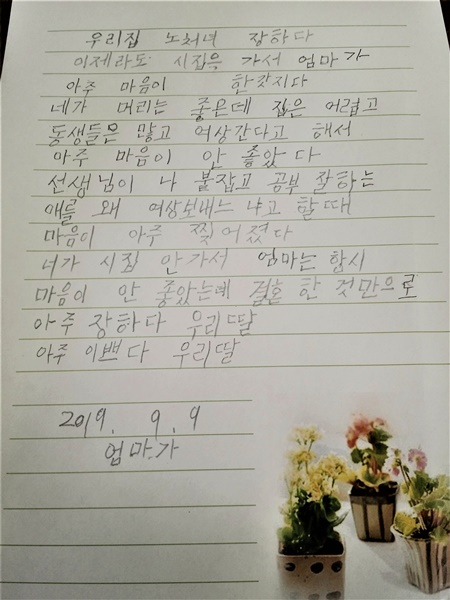 우리집 노처녀 장하다
이제라도 시집을 가서 엄마가
아주 마음이 한갓지다
네가 머리는 좋은데 집은 어렵고
동생들은 많고 여상간다고 해서
아주 마음이 안 좋았다
선생님이 나 붙잡고 공부 잘하는
애를 왜 여상보내느냐고 할때
마음이 아주 찢어졌다
너가 시집 안가서 엄마는 항시
마음이 안 좋았는데 결혼 한 것만으로
아주 장하다 우리딸
아주 이쁘다 우리딸
2019. 9. 9
엄마가